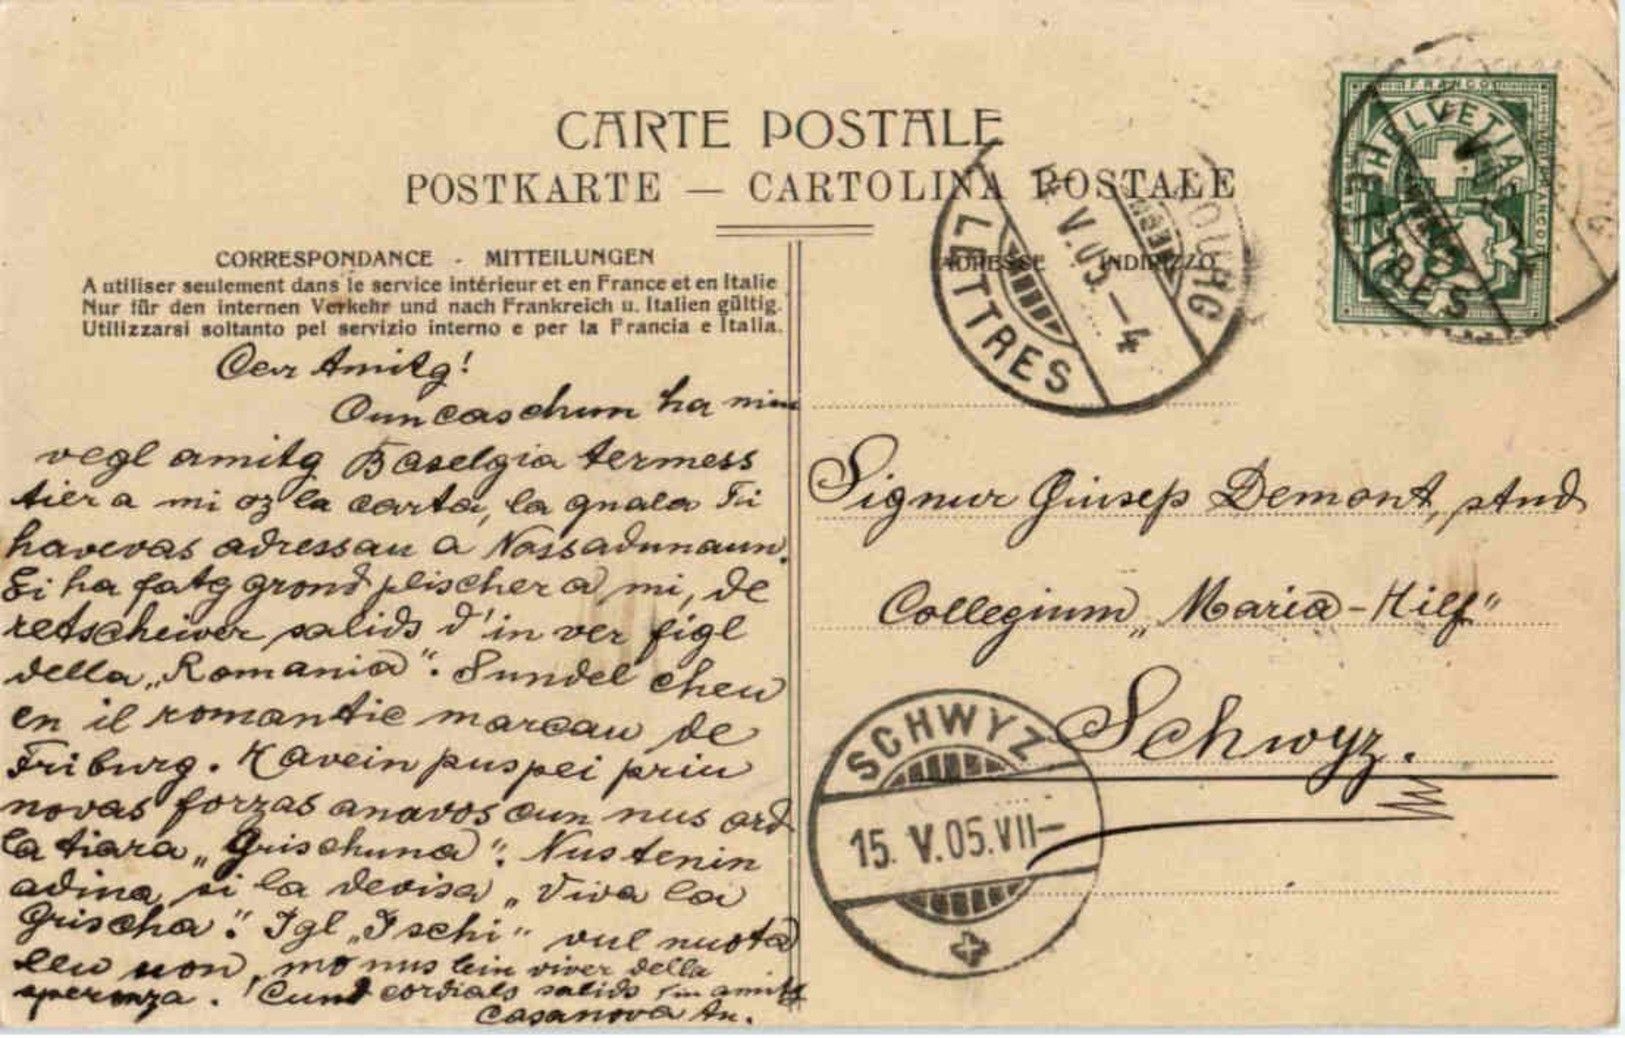 CARTE POSTALE
POSTKARTE — CARTOLINA POSTALE
CORRESPONDANCE - MITTEILUNGEN
A utiliser seulement dans le service intérieur et en France et en Italie
Nur für den internen Verkehr und nach Frankreich u. Italien gültig.
Utilizzarsi soltanto pel servizio interno e per la Francia e Italia.
ADRESSE INDIRIZZO
Car Amitg!
Cun caschun ha miu
vegl amitg Baselgia termess
tier a mi oz la carta, la quala Ti
havevas adressau a Nossadunaun.
Ei ha fatg grond plischer a mi, de
retscheiver salids d'in ver figl
della „Romania". Sundel cheu
en il romantic marcau de
Friburg. Havein puspei priu
novas forzas anavos cun nus ord
la tiara „Grischuna". Nus tenin
adina si la devisa „Viva la
Grischa". Igl „Ischi" vul nuota
leu non, mo nus lein viver della
speronza. Cun cordials salids tiu amitg
Casanova An.
Signur Giusep Demont, stud
Collegium „Maria-Hilf"
Schwyz.
FRANCO
HELVETIA
5
LETTRES
LETTRES
V.05.–4
SCHWYZ
15. V.05.VII–